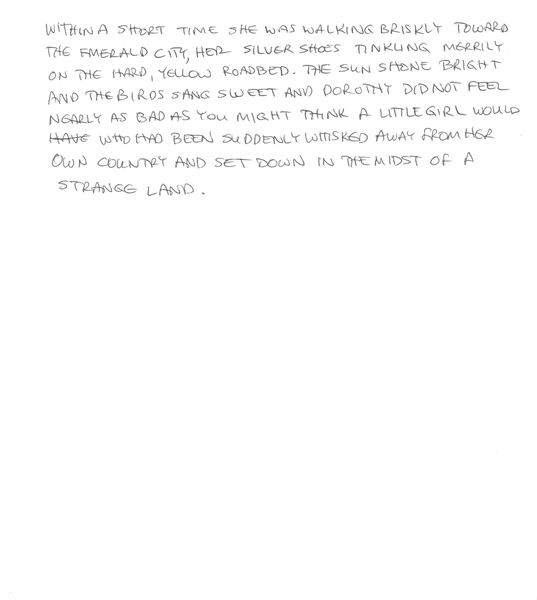 WITHIN A SHORT TIME SHE WAS WALKING BRISKLY TOWARD
THE EMERALD CITY, HER SILVER SHOES TINKLING MERRILY
ON THE HARD, YELLOW ROADBED. THE SUN SHONE BRIGHT
AND THE BIRDS SANG SWEET AND DOROTHY DID NOT FEEL
NEARLY AS BAD AS YOU MIGHT THINK A LITTLE GIRL WOULD
HAVE WHO HAD BEEN SUDDENLY WHISKED AWAY FROM HER
OWN COUNTRY AND SET DOWN IN THE MIDST OF A
STRANGE LAND.